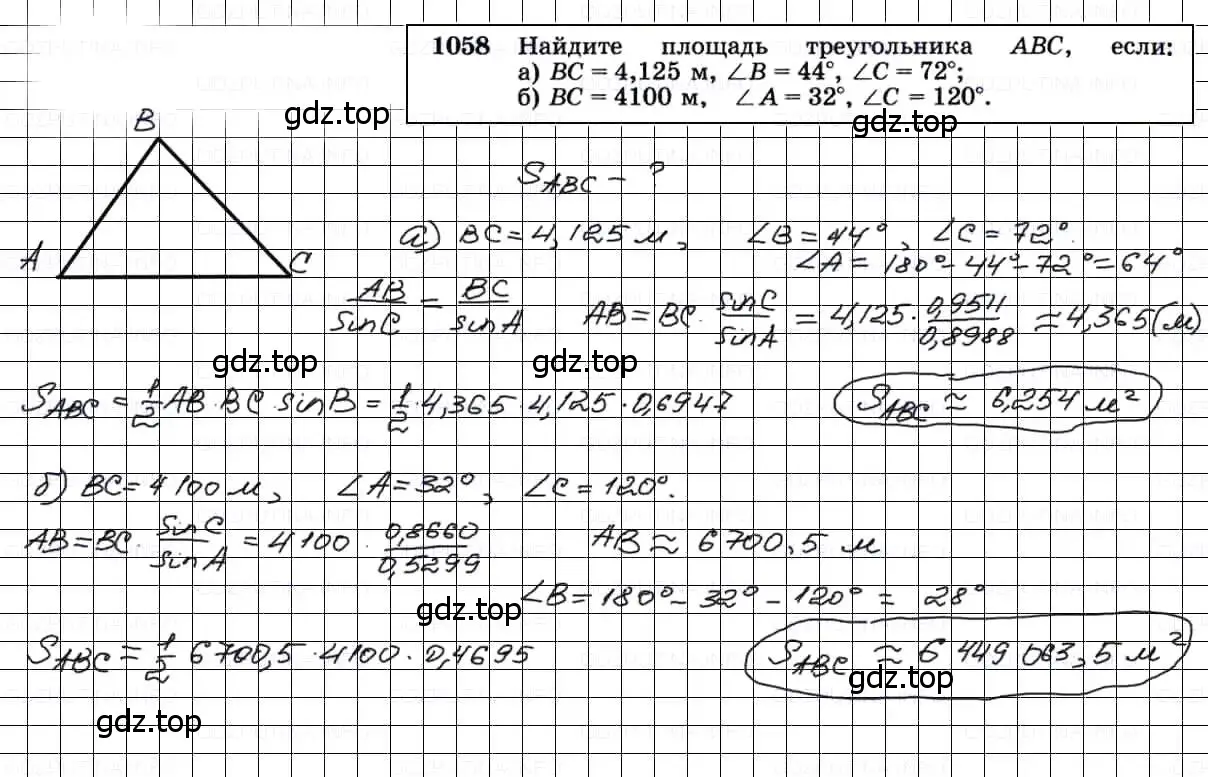 1058 Найдите площадь треугольника ABC, если:
а) BC = 4,125 м, ∠B = 44°, ∠C = 72°;
б) BC = 4100 м, ∠A = 32°, ∠C = 120°.
gdz.top
gdz.top
B
A
C
S_ABC - ?
а) BC = 4,125 м, ∠B = 44°, ∠C = 72°.
∠A = 180° - 44° - 72° = 64°
AB/sinC = BC/sinA AB = BC · sinC/sinA = 4,125 · 0,9511/0,8988 ≈ 4,365 (м)
gdz.top
gdz.top
S_ABC = 1/2 AB · BC sinB = 1/2 · 4,365 · 4,125 · 0,6947 S_ABC ≈ 6,254 м²
б) BC = 4100 м, ∠A = 32°, ∠C = 120°.
AB = BC · sinC/sinA = 4100 · 0,8660/0,5299 AB ≈ 6700,5 м
∠B = 180° - 32° - 120° = 28°
gdz.top
S_ABC = 1/2 6700,5 · 4100 · 0,4695 S_ABC ≈ 6 449 063,5 м²
gdz.top
gdz.top